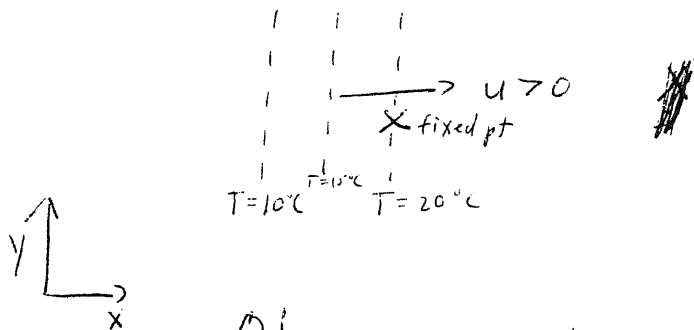 u > 0
fixed pt
T=10°C T=15°C T=20°C
y
x